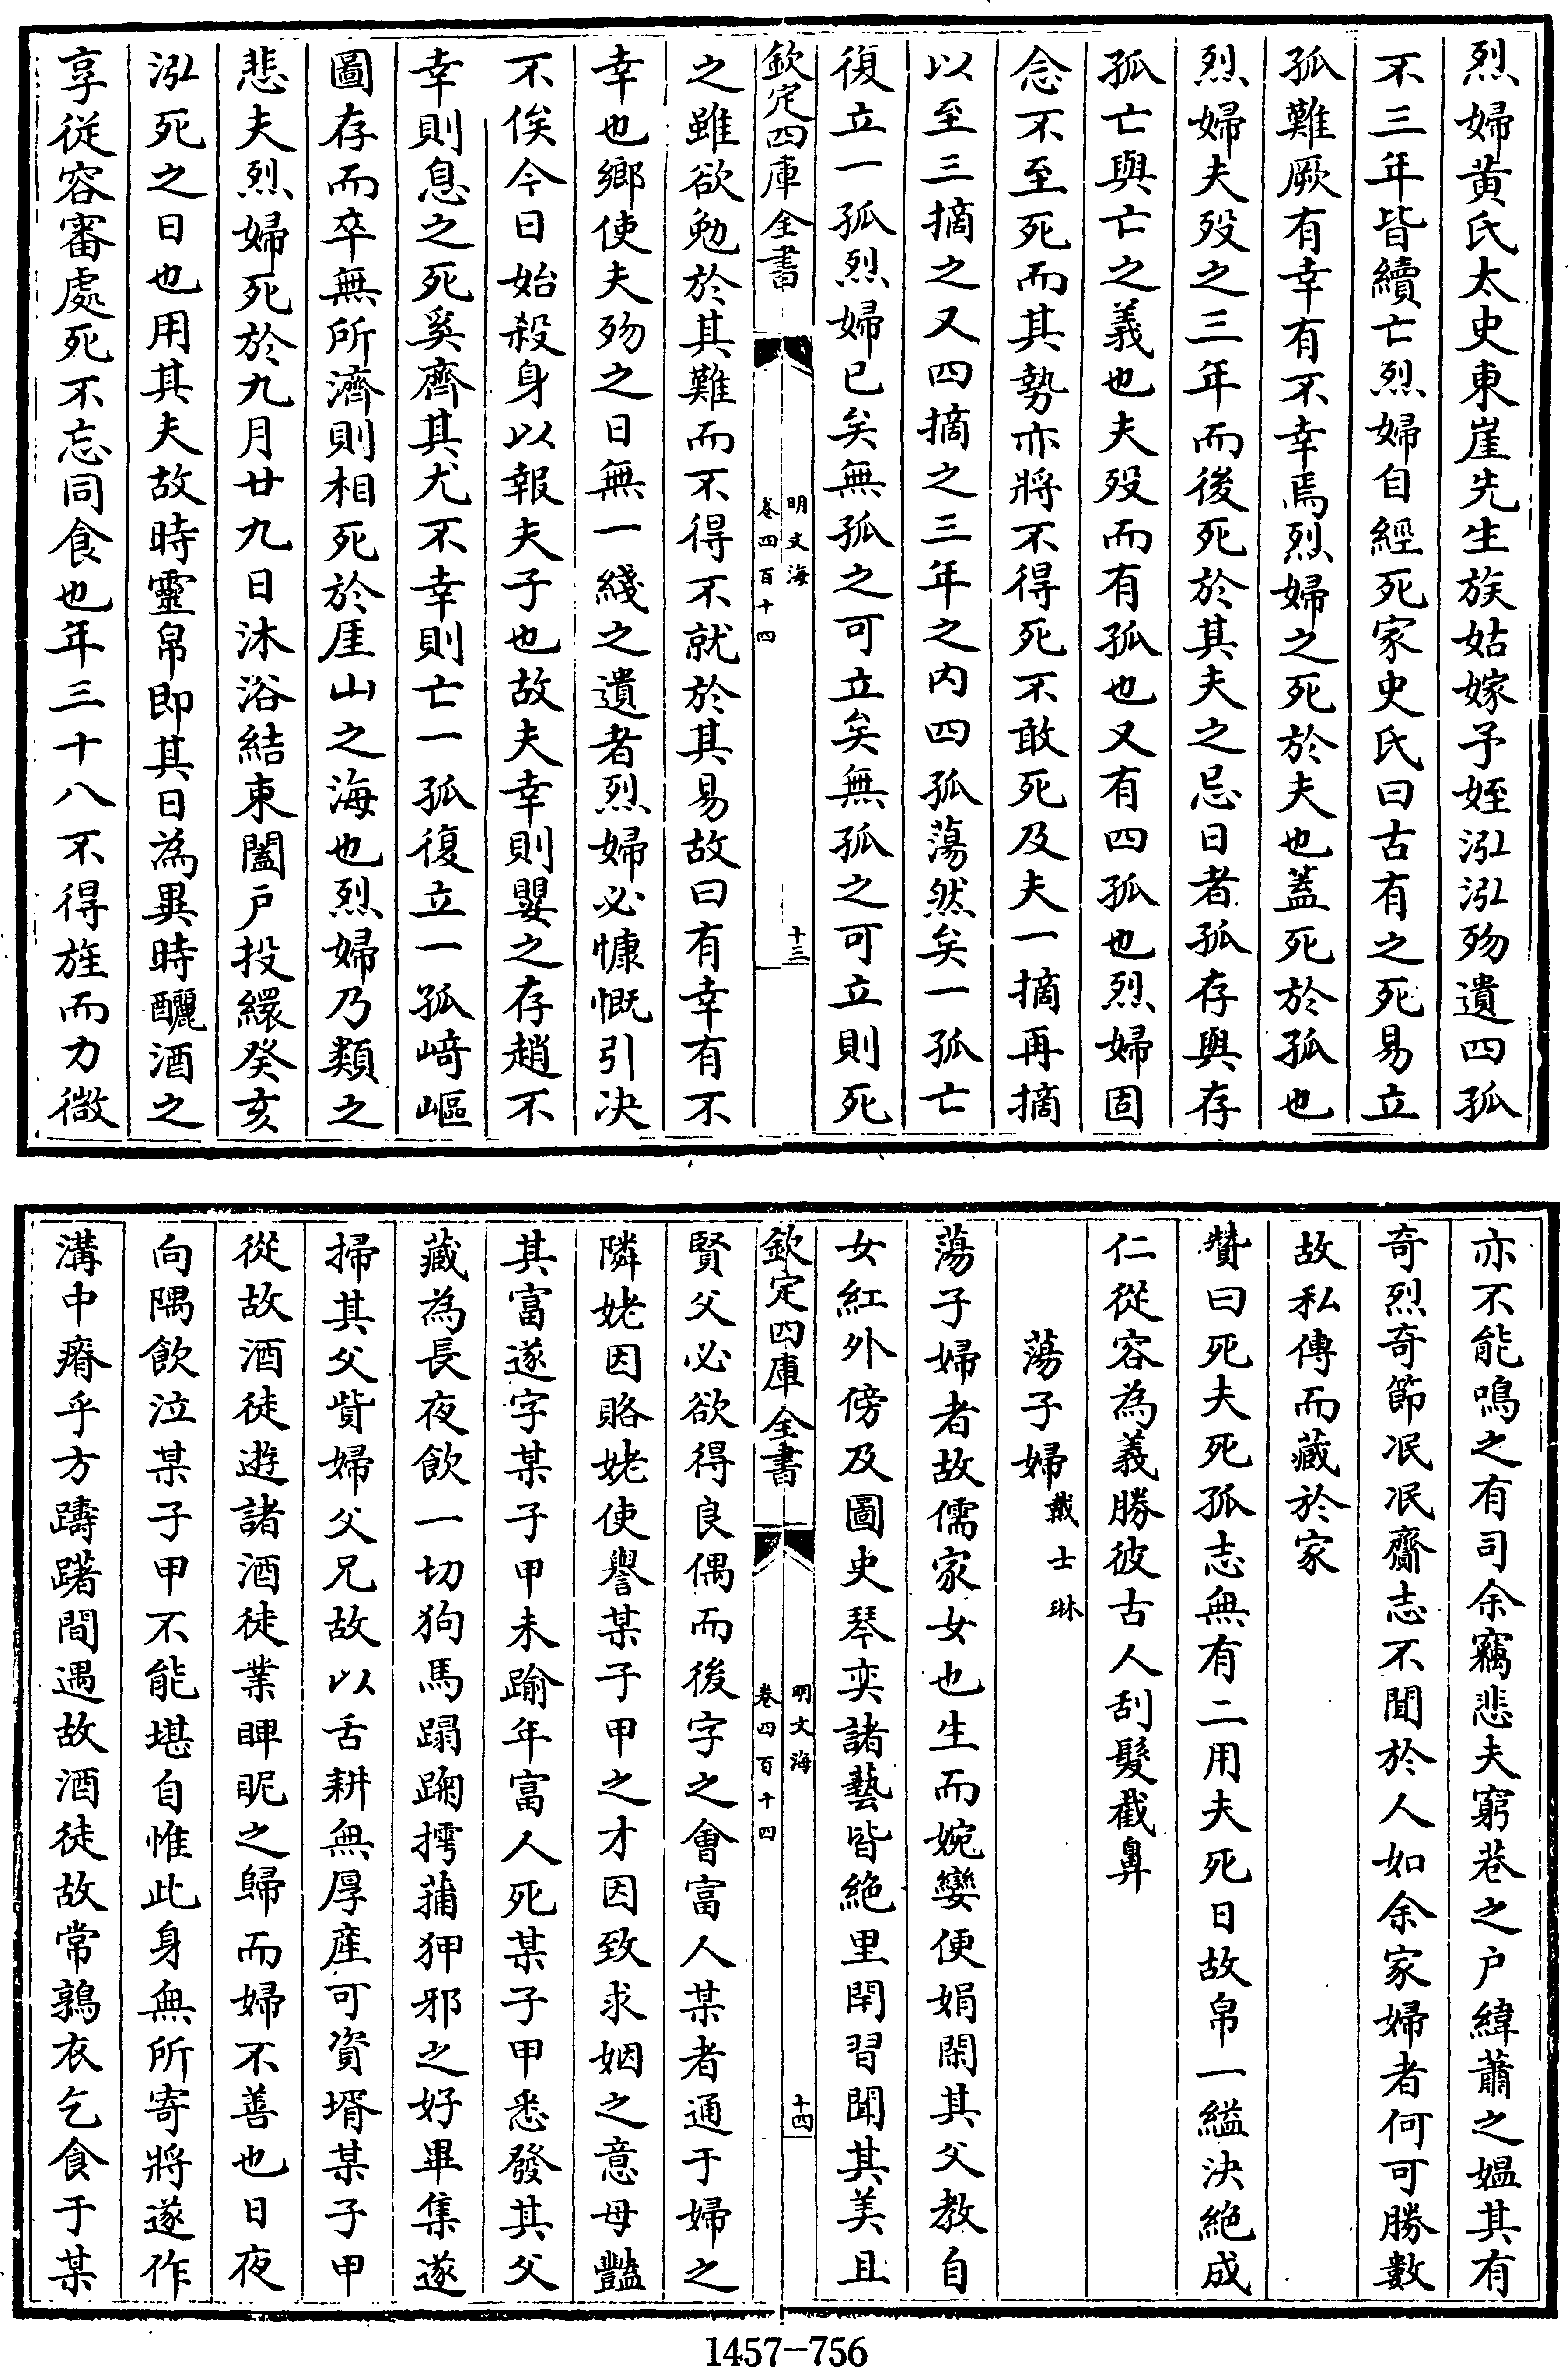 烈婦黄氏太史東崖先生族姑嫁予姪泓泓歿遺四孤
不三年皆續亡烈婦自經死家史氏曰古有之死易立
孤難厥有幸有不幸焉烈婦之死於夫也蓋死於孤也
烈婦夫歿之三年而後死於其夫之忌日者孤存與存
孤亡與亡之義也夫歿而有孤也又有四孤也烈婦固
念不至死而其勢亦將不得死不敢死及夫一摘再摘
以至三摘之又四摘之三年之内四孤蕩然矣一孤亡
復立一孤烈婦已矣無孤之可立矣無孤之可立則死
欽定四庫全書
明文海
卷四百十四
十三
之雖欲勉於其難而不得不就於其易故曰有幸有不
幸也鄉使夫歿之日無一綫之遺者烈婦必慷慨引决
不俟今日始殺身以報夫子也故夫幸則嬰之存趙不
幸則息之死奚齊其尤不幸則亡一孤復立一孤﨑嶇
圖存而卒無所濟則相死於厓山之海也烈婦乃類之
悲夫烈婦死於九月廿九日沐浴結束闔戶投繯癸亥
泓死之日也用其夫故時靈帛即其日為異時釃酒之
享從容審處死不忘同食也年三十八不得旌而力微
亦不能鳴之有司余竊悲夫窮巷之户緯蕭之媼其有
奇烈奇節泯泯齎志不聞於人如余家婦者何可勝數
故私傳而藏於家
贊曰死夫死孤志無有二用夫死日故帛一縊決絶成
仁從容為義勝彼古人刮髮截鼻
蕩子婦戴士琳
蕩子婦者故儒家女也生而婉孌便娟閑其父教自
女紅外傍及圖史琴奕諸藝皆絶里閈習聞其美且
欽定四庫全書
明文海
卷四百十四
十四
賢父必欲得良偶而後字之會富人某者通于婦之
隣姥因賂姥使譽某子甲之才因致求姻之意母豔
其富遂字某子甲未踰年富人死某子甲悉發其父
藏為長夜飲一切狗馬蹋踘摴蒱狎邪之好畢集遂
掃其父貲婦父兄故以舌耕無厚産可資壻某子甲
從故酒徒遊諸酒徒業睥睨之歸而婦不善也日夜
向隅飲泣某子甲不能堪自惟此身無所寄將遂作
溝中瘠乎方躊躇間遇故酒徒故常鶉衣乞食于某
1457-756